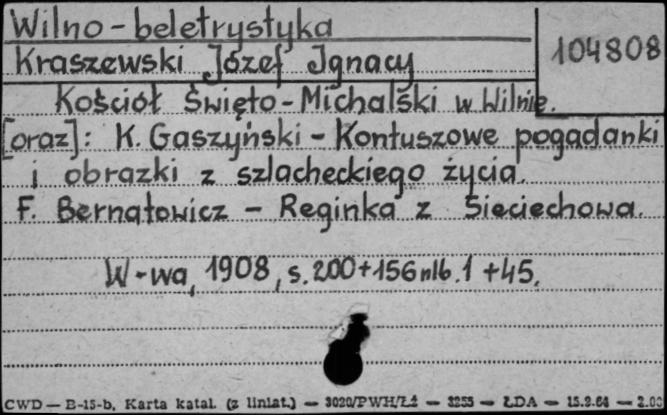 Wilno - beletrystyka
104808
Kraszewski Józef Ignacy
Kościół Święto-Michalski w Wilnie.
[oraz]: K. Gaszyński - Kontuszowe pogadanki
i obrazki z szlacheckiego życia.
F. Bernatowicz - Reginka z Sieciechowa.
W-wa, 1908, s. 200+156 nlb. 1 +45.
CWD — B-15-b, Karta katal. (z liniat.) — 3020/PWH/Łź — — ŁDA —